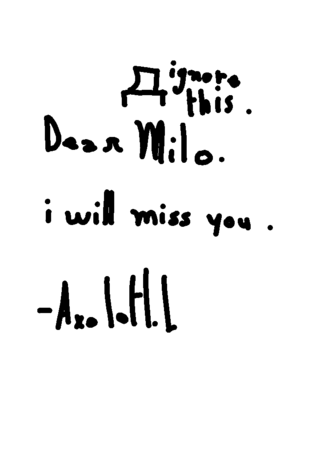 ignore
this.
Dear Milo.
i will miss you.
-Axolotl.L